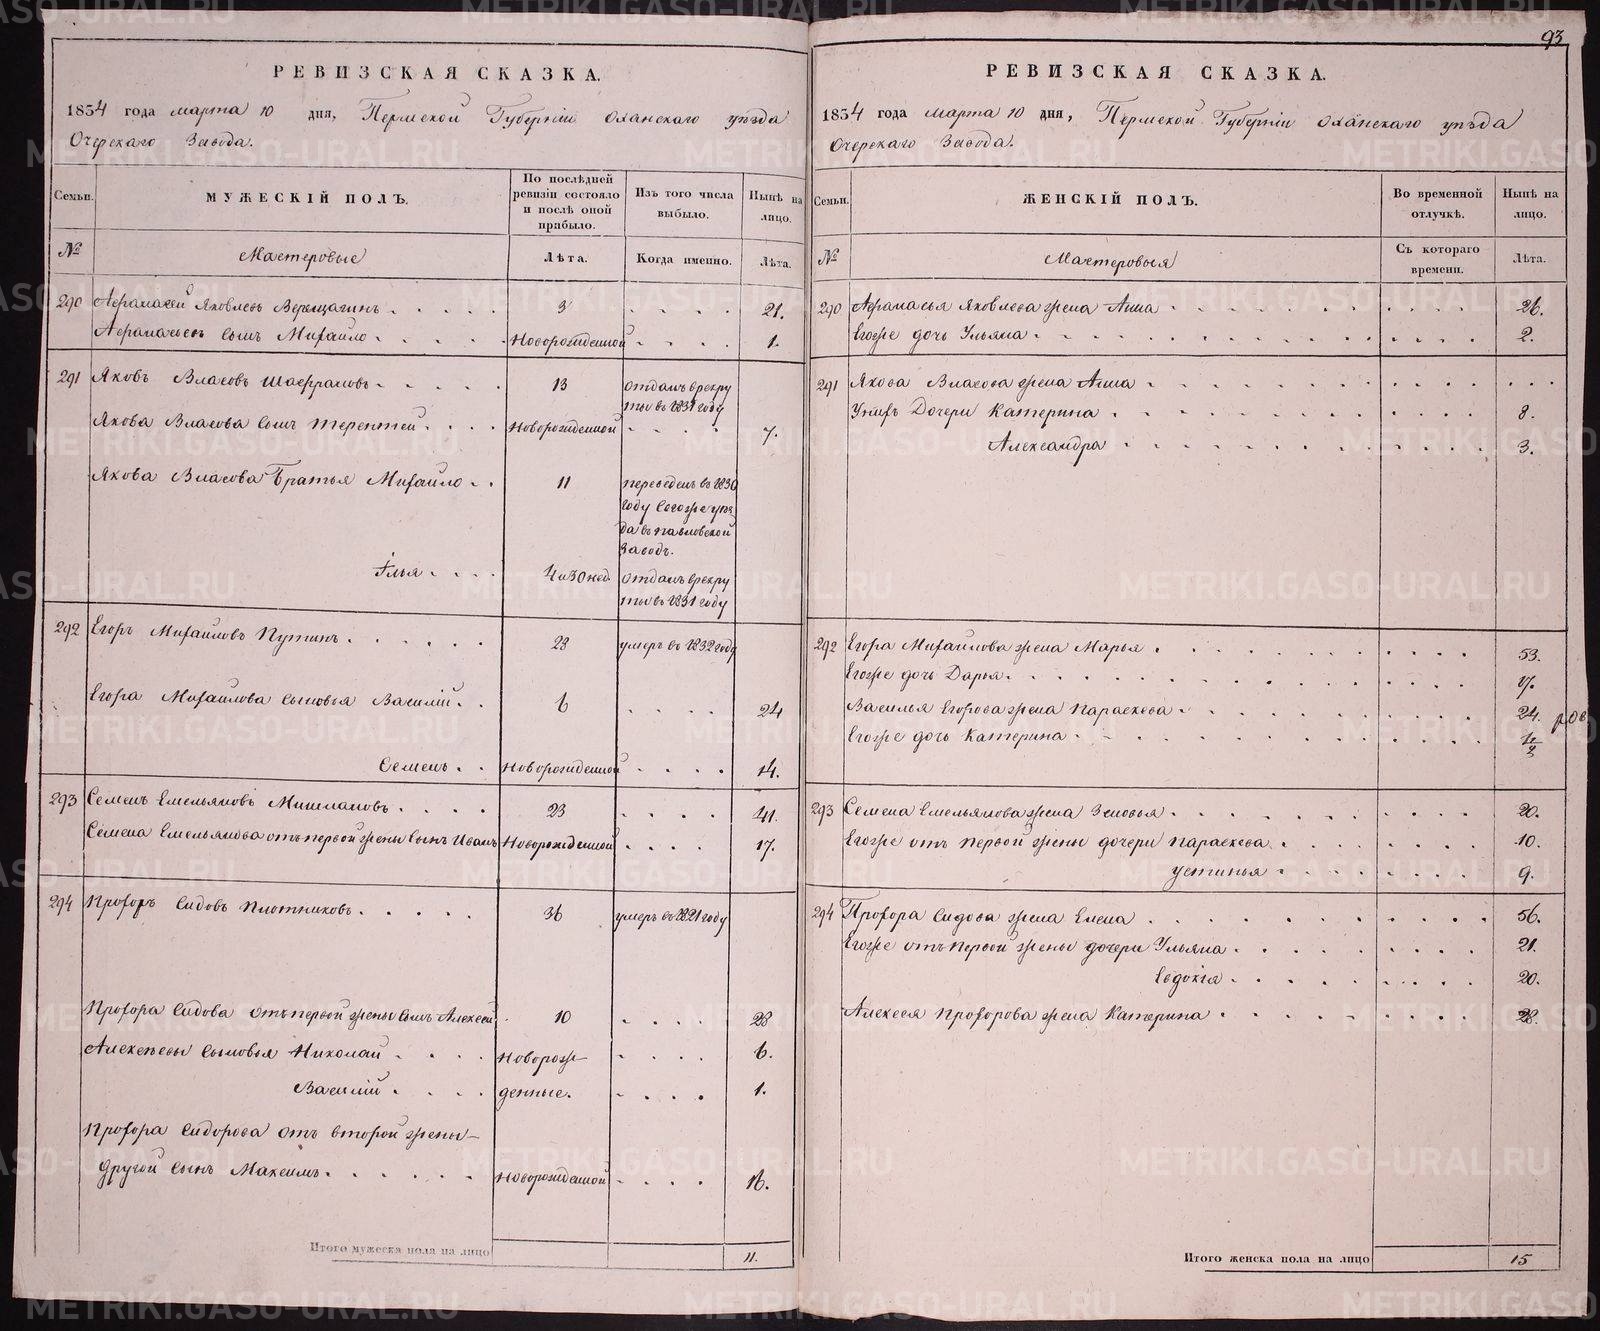 93
РЕВИЗСКАЯ СКАЗКА.
1834 года марта 10 дня, Пермской Губерніи Оханскаго уѣзда
Очерскаго Завода.
Семьи.
МУЖЕСКІЙ ПОЛЪ.
По послѣдней ревизіи состояло и послѣ оной прибыло.
Изъ того числа выбыло.
Нынѣ на лицо.
№
Мастеровые
Лѣта.
Когда именно.
Лѣта.
290 Афанасей Яковлевъ Верещагинъ 3 21.
Афанасьевъ сынъ Михайло Новорожденной 1.
291 Яковъ Власовъ Шафрановъ 13 отданъ в рекру
ты въ 1831 году
Якова Власова сынъ Терентей Новорожденной 7.
Якова Власова Братья Михайло 11 переведенъ въ 1830
году Тогоже уѣз
да въ Павловской
Заводъ.
Илья 4 и 30 нед. отданъ в рекру
ты въ 1831 году
292 Егоръ Михайловъ Путинъ 28 умеръ въ 1832 году
Егора Михайлова сыновья Василій 6 24
Семенъ Новорожденной 14.
293 Семенъ Емельяновъ Мишлановъ 23 41.
Семена Емельянова отъ первой жены сынъ Иванъ Новорожденной 17.
294 Прохоръ Сидовъ Плотниковъ 36 умеръ въ 1821 году
Прохора Сидова отъ первой жены сынъ Алексей 10 28
Алексеевы сыновья Николай Новорож- 6.
Василій денные. 1.
Прохора Сидорова отъ второй жены
другой сынъ Максимъ Новорожденной 16.
Итого мужеска пола на лицо 11.
РЕВИЗСКАЯ СКАЗКА.
1834 года марта 10 дня, Пермской Губерніи Оханскаго уѣзда
Очерскаго Завода.
Семьи.
ЖЕНСКІЙ ПОЛЪ.
Во временной отлучкѣ.
Нынѣ на лицо.
№
Мастеровыя
Съ котораго времени.
Лѣта.
290 Афанасья Яковлева жена Анна 26.
Егоже дочь Ульяна 2.
291 Якова Власова жена Анна
Унихъ Дочери Катерина 8.
Александра 3.
292 Егора Михайлова жена Марья 53.
Егоже дочь Дарья 17.
Василья Егорова жена Параскева 24.
Егоже дочь Катерина 1/2
293 Семена Емельянова жена Зеновья 20.
Егоже отъ первой жены дочери Параскева 10.
Устинья 9.
294 Прохора Сидова жена Елена 56.
Егоже отъ первой жены дочери Ульяна 21.
Евдокія 20.
Алексея Прохорова жена Катерина 28.
Итого женска пола на лицо 15
METRIKI.GASO-URAL.RU